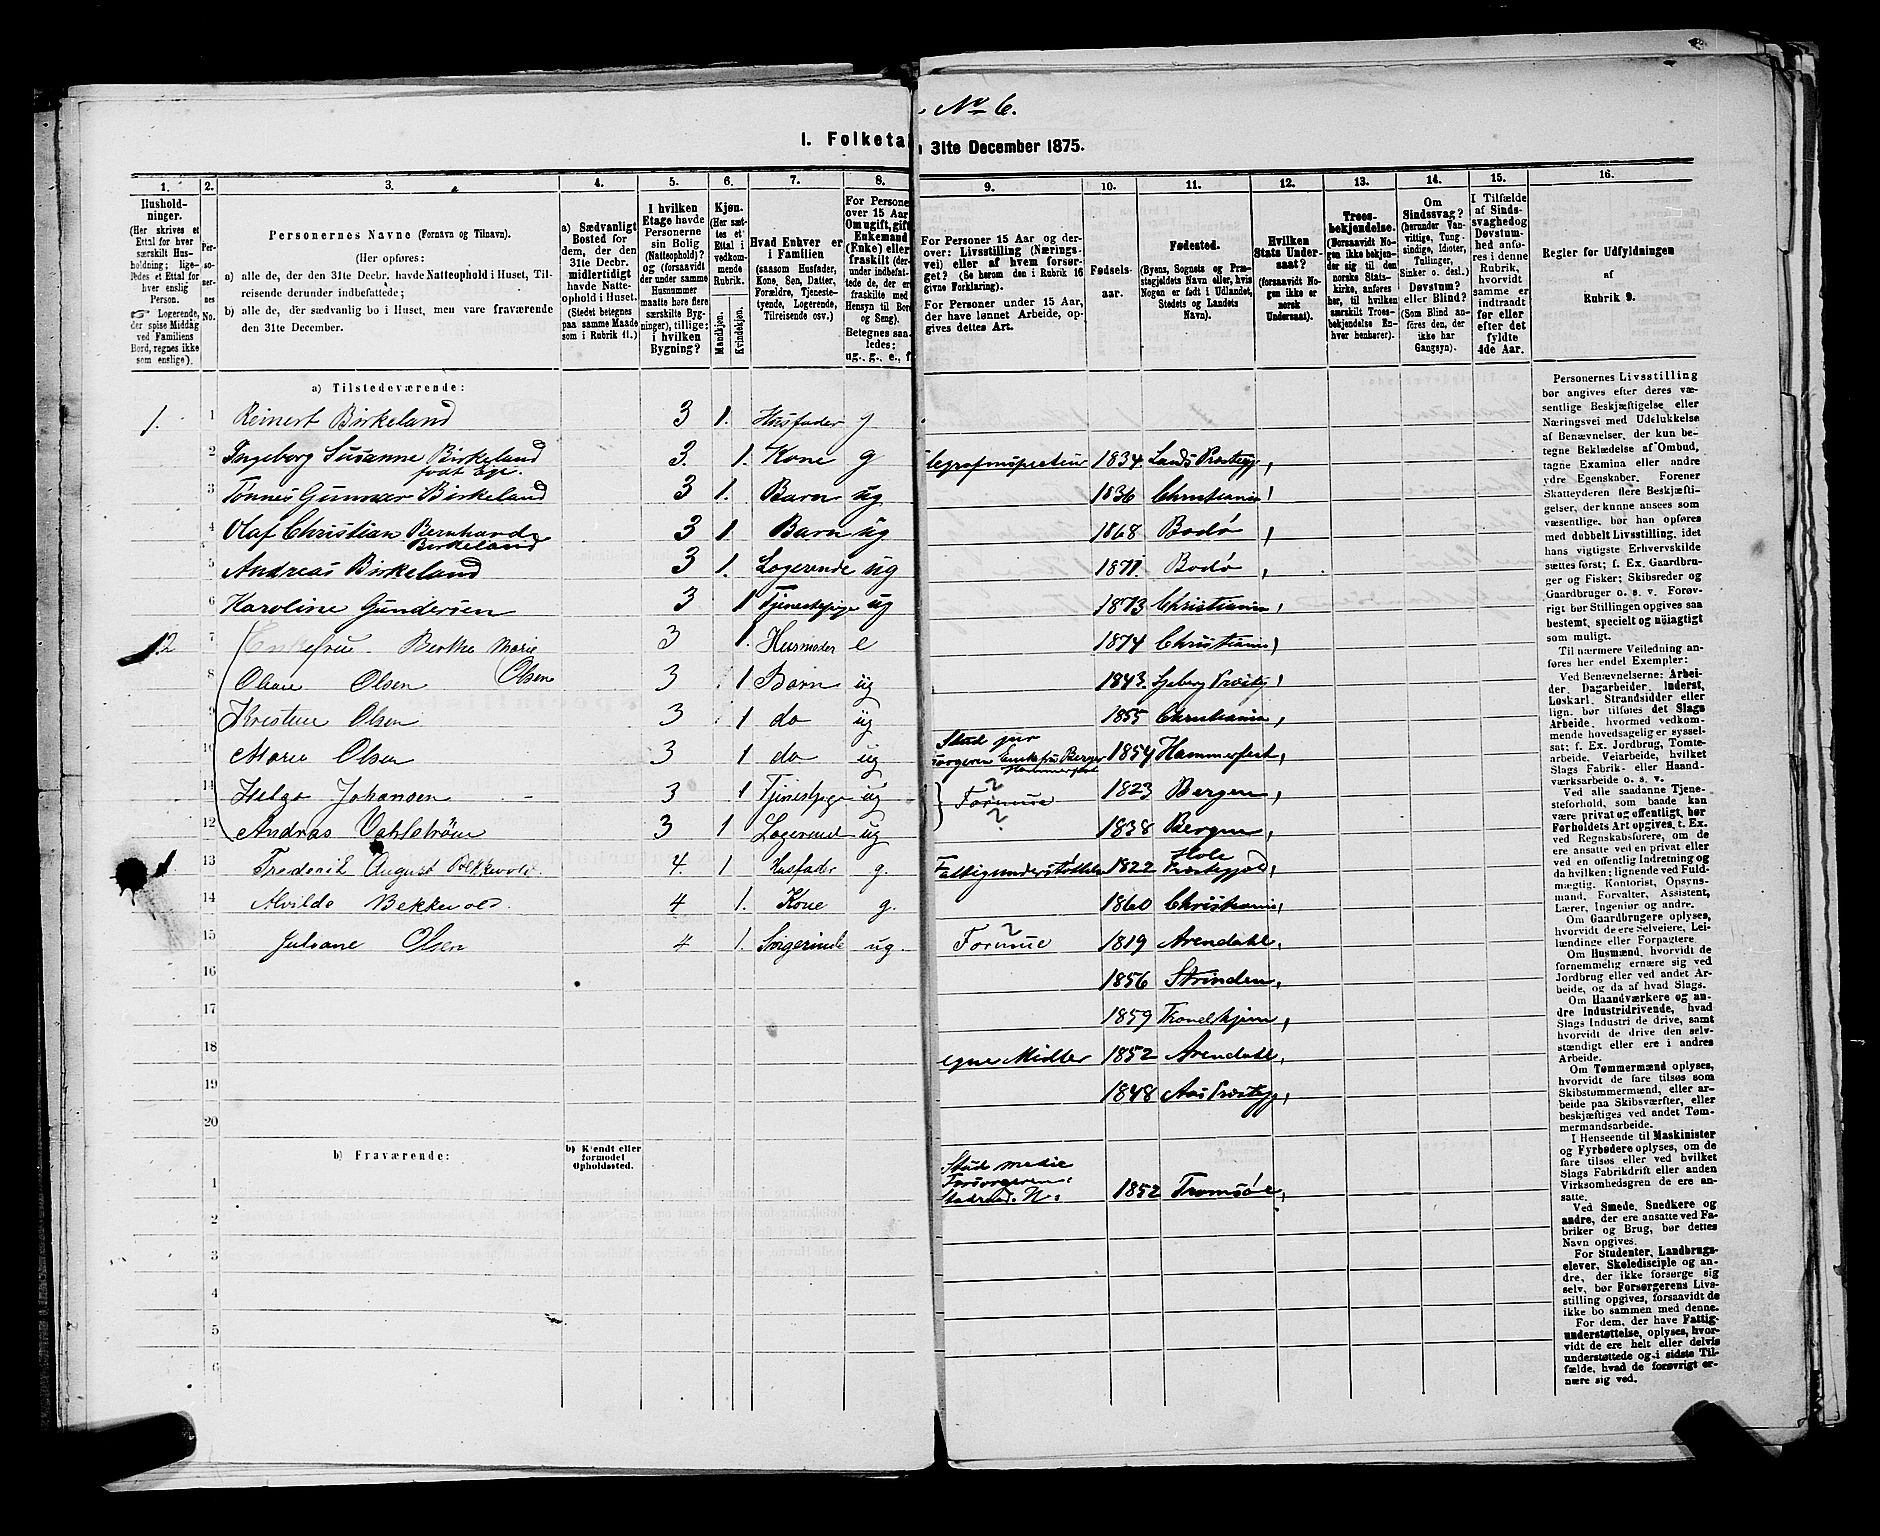 No 6.
I. Folketa
31te December 1875.
1.
2.
3.
4.
5.
6.
7.
8.
9.
10.
11.
12.
13.
14.
15.
16.
Hushold-
ninger.
(Her skrives et
Ettal for hver
særskilt Hus-
holdning; lige-
ledes et Ettal for
hver enslig
Person.
☞ Logerende,
der spise Middag
ved Familiens
Bord, regnes ikke
som enslige).
Per-
so-
ner-
nes
No.
Personernes Navne (Fornavn og Tilnavn).
(Her opføres:
a) alle de, der den 31te Decbr. havde Natteophold i Huset, Til-
reisende derunder indbefattede;
b) alle de, der sædvanlig bo i Huset, men vare fraværende
den 31te December.
a) Sædvanligt
Bosted for
dem, der den
31te Decbr.
midlertidigt
havde Natte-
ophold i Huset.
(Stedet betegnes
paa samme Maade
som i Rubrik 11.)
I hvilken
Etage havde
Personerne
sin Bolig
(Natteophold)?
og (forsaavidt
der under samme
Husnummer
maatte høre flere
særskilte Byg-
ninger), tillige:
i hvilken
Bygning?
Kjøn.
(Her sæt-
tes et
Ettal i
vedkom-
mende
Rubrik.
Mandkjøn.
Kvindekjøn.
Hvad Enhver er
i Familien
(saasom Husfader,
Kone, Søn, Datter,
Forældre, Tjeneste-
tyende, Logerende,
Tilreisende osv.)
For Persone
over 15 Aar
Om ugift, gift
Enkemand
(Enke) eller
fraskilt (der-
under indbefat-
tede de, der er
fraskilte med
Hensyn til Bord
og Seng).
Betegnes saa-
ledes:
ug., g., e., f.
For Personer 15 Aar og der-
over: Livsstilling (Nærings-
vei) eller af hvem forsør-
get? (Se herom den i Rubrik 16
givne Forklaring).
For Personer under 15 Aar,
der have lønnet Arbeide, op-
gives dettes Art.
Fødsels-
aar.
Fødested.
(Byens, Sognets og Præ-
stegjeldets Navn eller, hvis
Nogen er født i Udlandet,
Stedets og Landets
Navn).
Hvilken
Stats Under-
saat?
(forsaavidt No-
gen ikke er
norsk
Undersaat).
Troes-
bekjendelse.
(Forsaavidt No-
gen ikke bekjen-
der sig til den
norske Stats-
kirke, anføres
her, til hvilken
særskilt Troes-
bekjendelse En-
hver henhører).
Om
Sindssvag?
(herunder Van-
vittige, Tung-
sindige, Idioter,
Tullinger,
Sinker o. desl.)
Døvstum?
eller Blind?
(Som Blind an-
føres den, der
ikke har
Gangsyn).
I Tilfælde
af Sinds-
svaghed og
Døvstum-
hed anfø-
res i denne
Rubrik,
hvorvidt
samme er
indtraadt
før eller
efter det
fyldte
4de Aar.
Regler for Udfyldningen
af
Rubrik 9.
a) Tilstedeværende:
1. 1 Reinert Birkeland 3 1. Husfader g
2 Ingeborg Susanne Birkeland 3. 1. Kone g
født Ege.
3 Tønnes Gunnar Birkeland 3 1. Barn ug
4 Olaf Christian Bernhard 3 1 Barn ug
Birkeland
5 Andreas Birkeland 3 1. Logerende ug
6 Karoline Gundersen 3 1 Tjenestepige ug
2 7 Enkefru Berthe Marie 3 1. Husmoder e
Olsen
8 Olsen 3 1 Barn ug
9 Kristine Olsen 3 1 do ug
10 Marie Olsen 3 1 do ug
11 Helga Johansen 3 1 Tjenestpige ug
12 Andreas 3 1 Logerend ug
13 Frederik August Bekkevold 4. 1 Husfader g.
14 Alvilde Bekkevold 4 1. Kone g.
15 Juliane Olsen 4 1. ug.
16
17
18
19
20
legrafinspecteur 1834. Lands Præstegj,
1836 Christiania,
1868 Bodø,
1871. Bodø,
1873 Christiania,
1874 Christiania,
1843. Præstegj,
1855 Christiania,
Stud jur
Enkefru Berger 1854 Hammerfest,
Hammerfest
Formue 1823 Bergen,
1838 Bergen,
Fattigunderstøttelse 1822 Hole
Præstegjæld,
1860 Christiania,
Formue 1819 Arendahl,
1856 Strinden,
1859 Trondhjem,
egne Midler 1852 Arendahl,
1848 Aas Præstegj,
b) Fraværende:
b) Kjendt eller
formodet
Opholdssted.
1
2
3
4
5
6
Stud medic
Forsørgeren:
1852 Tromsøe,
Personernes Livsstilling
bør angives efter deres væ-
sentlige Beskjæftigelse eller
Næringsvei med Udelukkelse
af Benævnelser, der kun be-
tegne Beklædelse af Ombud,
tagne Examina eller andre
ydre Egenskaber. Forener
Skatteyderen flere Beskjæfti-
gelser, der kunne ansees som
væsentlige, bør han opføres
med dobbelt Livsstilling, idet
hans vigtigste Erhvervskilde
sættes først; f. Ex. Gaardbru-
ger og Fisker; Skibsreder og
Gaardbruger o. s. v. Forøv-
rigt bør Stillingen opgives saa
bestemt, specielt og nøiagtigt
som muligt.
Til nærmere Veiledning an-
føres her endel Exempler:
Ved Benævnelserne: Arbei-
der, Dagarbeider, Inderst,
Løskarl, Strandsidder eller
lign. bør tilføies det Slags
Arbeide, hvormed vedkom-
mende hovedsagelig er syssel-
sat; f. Ex. Jordbrug, Tomte-
arbeide, Veiarbeide, hvilket
Slags Fabrik- eller Haand-
værksarbeide o. s. v.
Ved alle saadanne Tjene-
steforhold, som baade kan
være privat og offentligt, bør
Forholdets Art opgives, t. Ex.
ved Regnskabsførere, om de
ere ansatte ved en privat eller
ved en offentlig Indretning og
da hvilken; lignende ved Fuld-
mægtig, Kontorist, Opsyns-
mand, Forvalter, Assistent,
Lærer, Ingeniør og andre.
Om Gaardbrugere oplyses,
hvorvidt de ere Selveiere, Lei-
lændinge eller Forpagtere.
Om Husmænd, hvorvidt de
fornemmelig ernære sig ved
Jordbrug eller ved andet Ar-
beide, og da af hvad Slags.
Om Haandværkere og an-
dre Industridrivende, hvad
Slags Industri de drive, samt
hvorvidt de drive den selv-
stændigt eller ere i andres
Arbeide.
Om Tømmermænd oplyses,
hvorvidt de fare tilsøs som
Skibstømmermænd, eller ar-
beide paa Skibsværfter, eller
beskjæftiges ved andet Tøm-
mermandsarbeide.
I Henseende til Maskinister
og Fyrbødere oplyses, om de
fare tilsøs eller ved hvilket
Slags Fabrikdrift eller anden
Virksomhedsgren de ere an-
satte.
Ved Smede, Snedkere og
andre, der ere ansatte ved Fa-
briker og Brug, bør dettes
Navn opgives.
For Studenter, Landbrugs-
elever, Skoledisciple og an-
dre, der ikke forsørge sig
selv, bør Forsørgerens Livs-
stilling opgives, forsaavidt de
ikke bo sammen med denne.
For dem, der have Fattig-
understøttelse, oplyses, hvor-
vidt de ere helt eller delvis
understøttede og i sidste Til-
fælde, hvad de forøvrigt er-
nære sig ved.